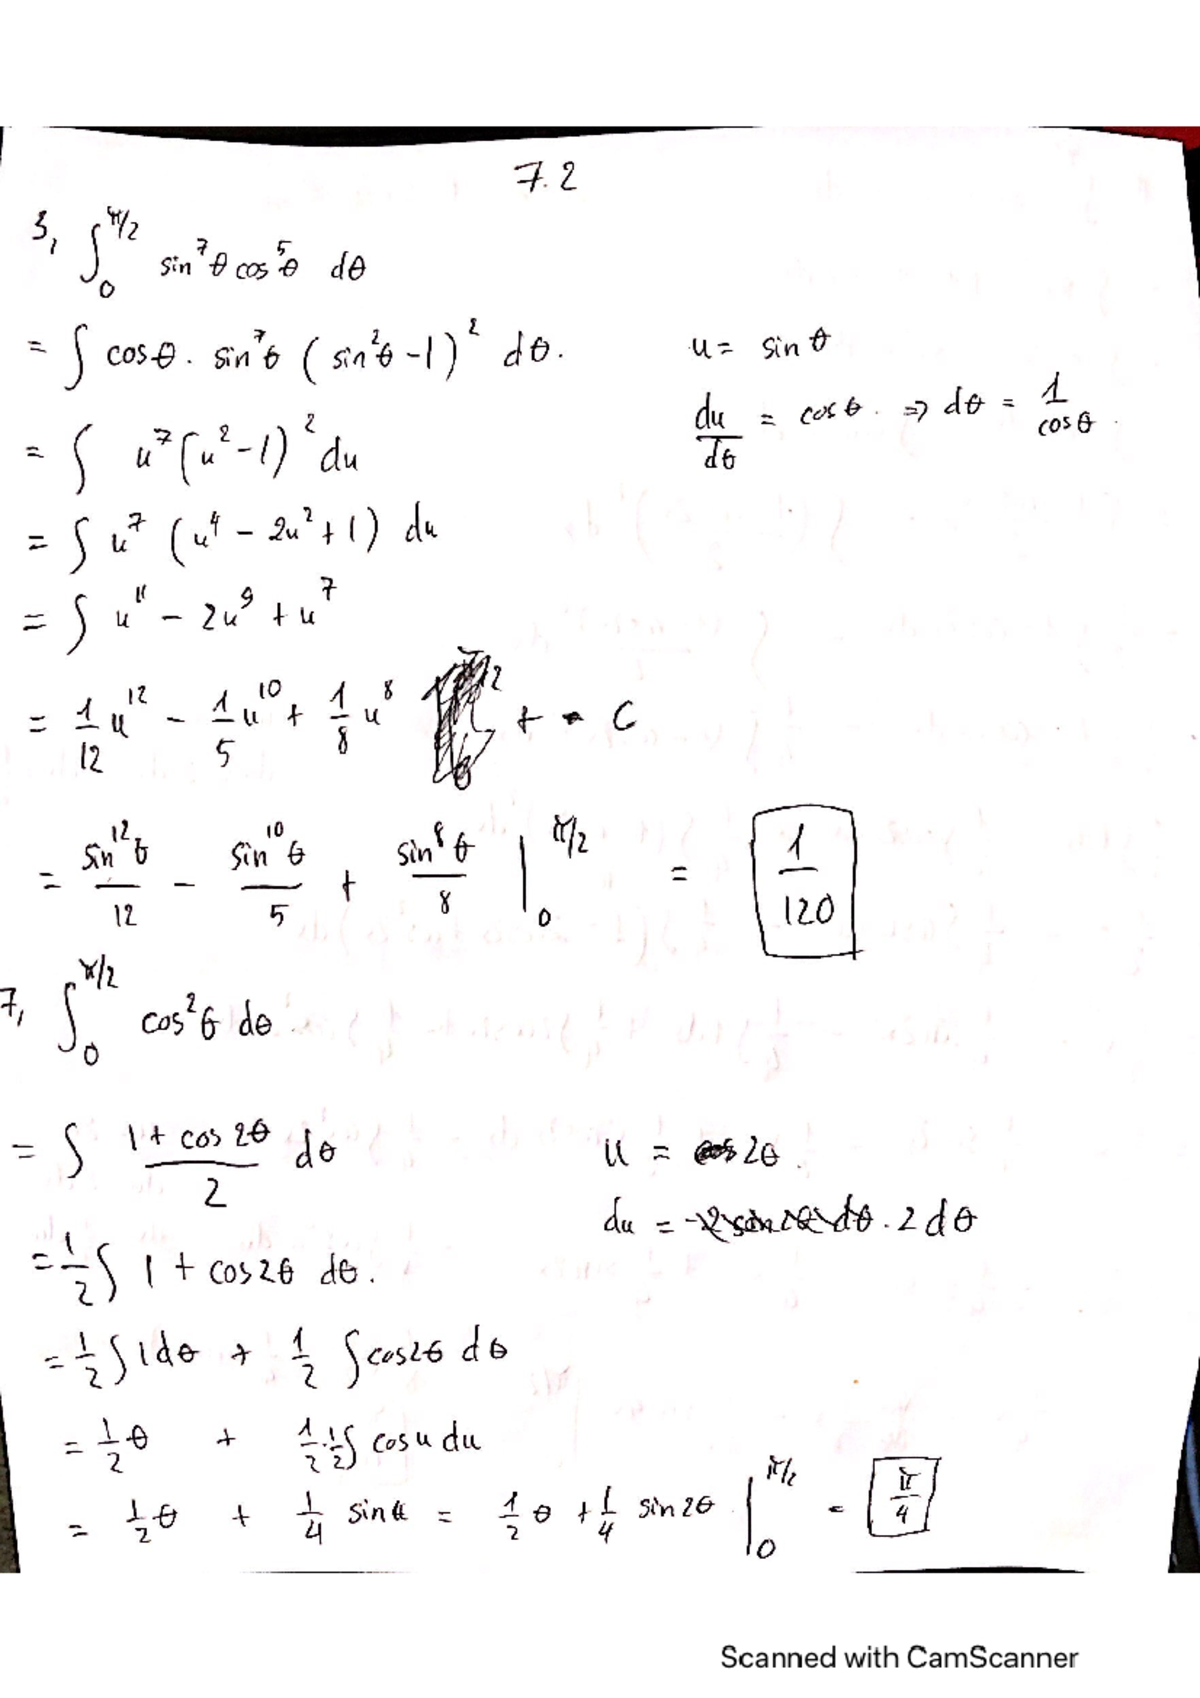 7.2
3, ∫₀^{π/2} sin⁷θ cos⁵θ dθ
= ∫ cosθ. sin⁷θ (sin²θ -1)² dθ. u = sin θ
= ∫ u⁷(u²-1)² du du/dθ = cosθ. => dθ = 1/cosθ.
= ∫ u⁷ (u⁴ - 2u² + 1) du
= ∫ u¹¹ - 2u⁹ + u⁷
= 1/12 u¹² - 1/5 u¹⁰ + 1/8 u⁸ + C
= sin¹²θ/12 - sin¹⁰θ/5 + sin⁸θ/8 |₀^{π/2} = 1/120
7, ∫₀^{π/2} cos²θ dθ
= ∫ (1 + cos 2θ)/2 dθ u = 2θ.
du = 2dθ
= 1/2 ∫ 1 + cos2θ dθ.
= 1/2 ∫ 1dθ + 1/2 ∫ cos2θ dθ
= 1/2 θ + 1/2 . 1/2 ∫ cosu du
= 1/2 θ + 1/4 sin u = 1/2 θ + 1/4 sin 2θ |₀^{π/2} = π/4
Scanned with CamScanner